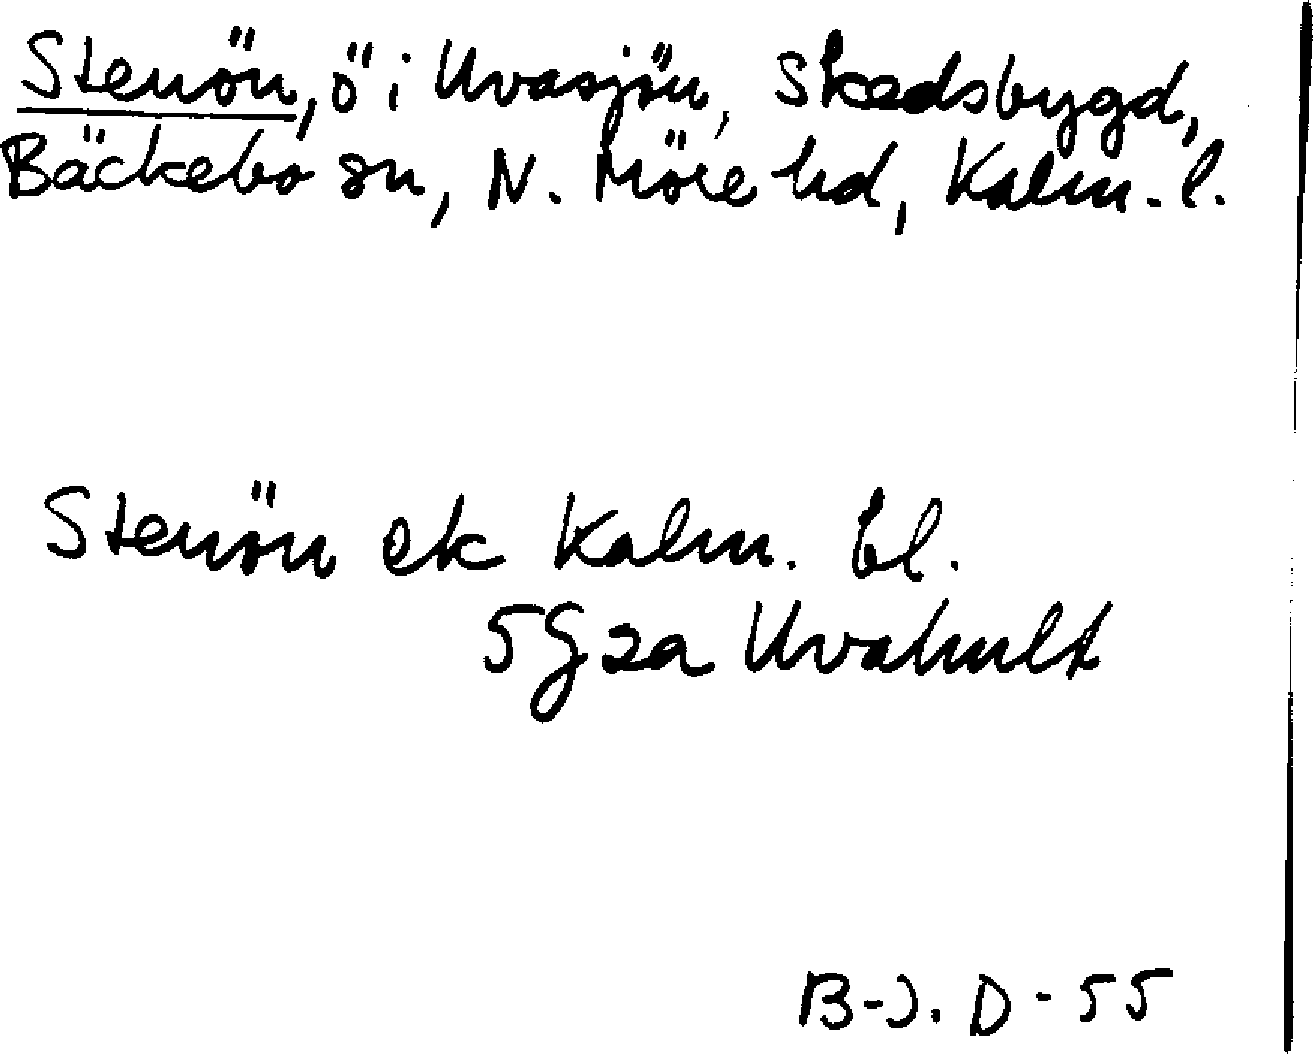 Stenön, ö i Uvasjön, Skedsbygd,
Bäckebo sn, N. Möre hd, Kalm. l.
Stenön ek Kalm. bl.
5G 2a Uvahult
B-J. D - 55